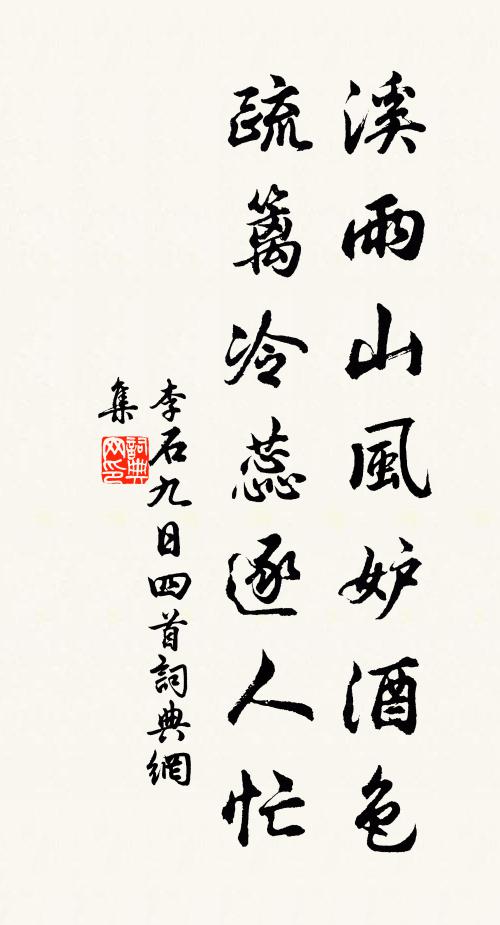 溪雨山風妒酒色
疏篱冷蕊逐人忙
李石九日四首詞典網
集
詞典
网印